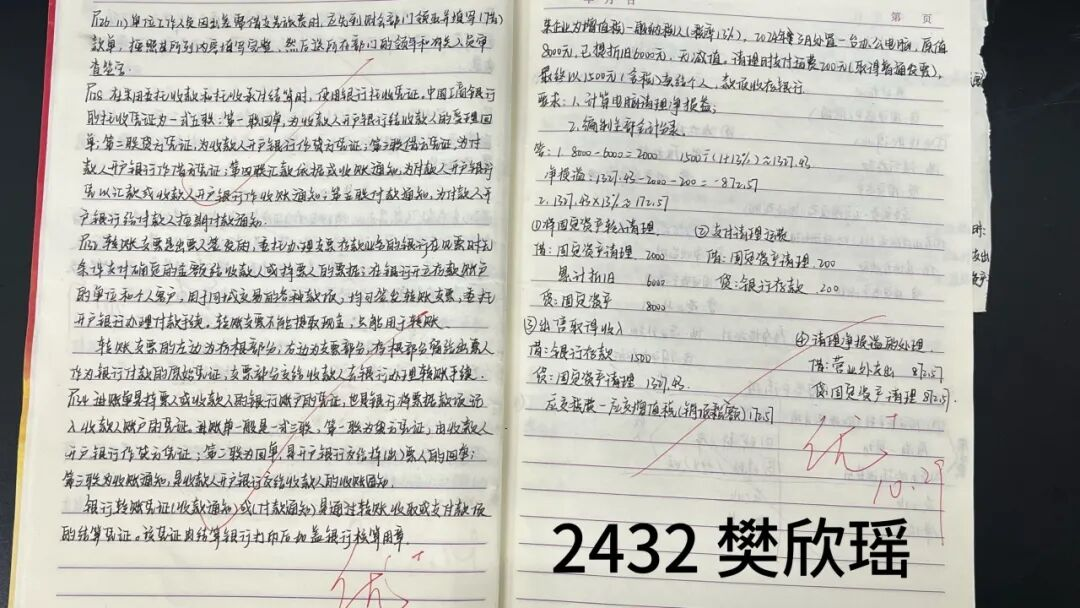 P26 (1)单位工作人员因出差需借支差旅费时,应先到财会部门领取并填写《借
款单,按照其所列内容填写完整,然后送所在部门的领导和有关人员审
查签字.
P28 在采用委托收款和托收承付结算时,使用银行托收凭证.中国工商银行
的托收凭证为一式五联:第一联回单,为收款人开户银行给收款人的受理回
单;第二联贷方凭证,为收款人开户银行作贷方凭证;第三联借方凭证,为付
款人开户银行作借方凭证;第四联汇款依据或收账通知,为付款人开户银行
凭以汇款或收款人开户银行作收账通知;第五联付款通知,为付款人开
户银行给付款人按期付款通知.
转账支票是出票人签发的,委托办理支票存款业务的银行在见票时无
条件支付确定的金额给收款人或持票人的票据;在银行开立存款账户
的单位和个人客户,用于同城交易的各种款项,均可签发转账支票,委托
开户银行办理付款手续。转账支票不能提取现金,只能用于转账.
转账支票的左边为存根部分,右边为支票部分,存根部分留给出票人
作为银行付款的原始凭证;支票部分交给收款人去银行办理转账手续.
进账单是持票人或收款人的银行账户的凭证,也是银行将票据款项记
入收款人账户的凭证.进账单一般是一式三联,第一联为贷方凭证,由收款人
开户银行作贷方凭证;第二联为回单,是开户银行交给持(出)票人的回单;
第三联为收账通知,是收款人开户银行交给收款人的收账通知.
银行转账凭证(收款通知)或(付款通知)是通过转账收取或支付款项
的结算凭证。该凭证由结算银行打印后加盖银行核算用章.
优
月 日
第 页
某企业为增值税一般纳税人(税率13%),2024年3月处置一台办公电脑,原值
8000元,已提折旧6000元,无减值。清理时支付运费200元(取得普通发票),
最终以1500元(含税)卖给个人,款项收存银行
要求:1.计算电脑清理净损益;
2.编制全部会计分录
答:1. 8000-6000=2000 1500÷(1+13%)≈1327.43
净损益:1327.43-2000-200=-872.57
2. 1327.43×13%≈172.57
①将固定资产转入清理 ②支付清理运费
借:固定资产清理 2000 借:固定资产清理 200
累计折旧 6000 贷:银行存款 200
贷:固定资产 8000
③出售取得收入 ④清理净损益的处理.
借:银行存款 1500 借:营业外支出 872.57
贷:固定资产清理 1327.43 贷:固定资产清理 872.57.
应交税费-应交增值税(销项税额)172.57
优
10.29
2432 樊欣瑶